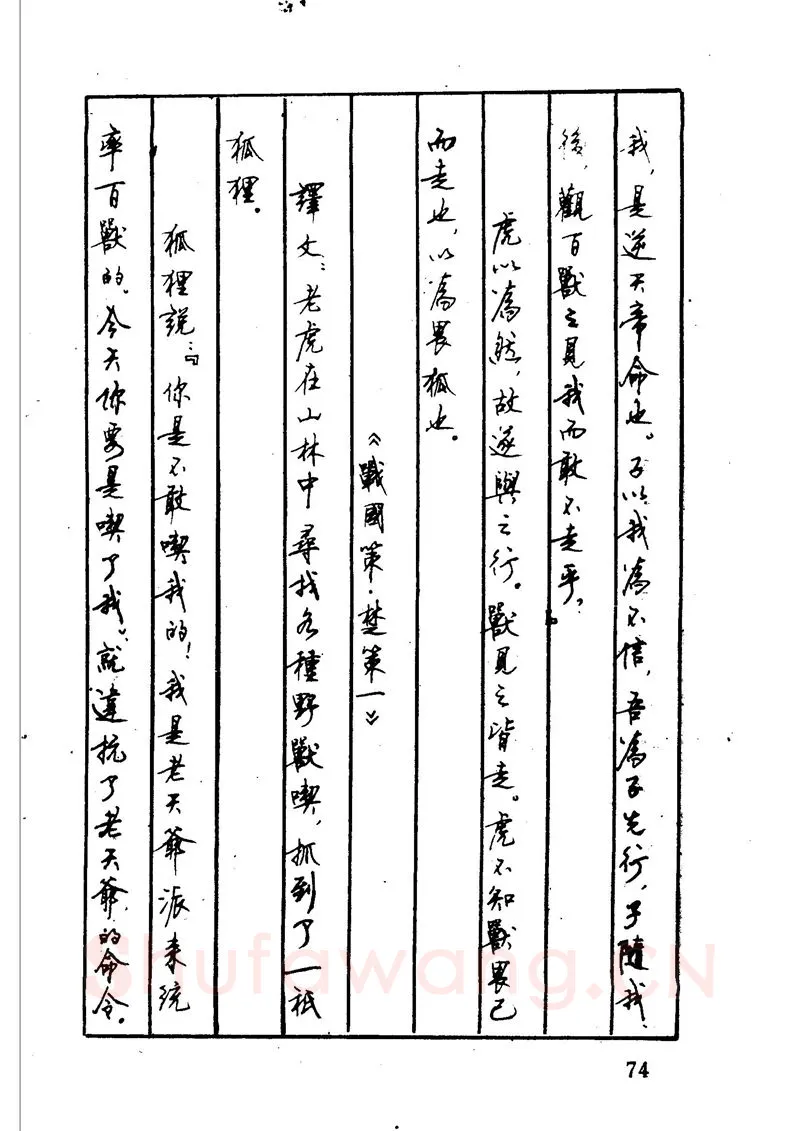 我，是逆天帝命也。子以我為不信，吾為子先行，子隨我
後，觀百獸之見我而敢不走乎？
虎以為然，故遂與之行。獸見之皆走。虎不知獸畏己
而走也，以為畏狐也。
《戰國策·楚策一》
譯文：老虎在山林中尋找各種野獸喫，抓到了一祇
狐狸。
狐狸説：“你是不敢喫我的！我是老天爺派来统
率百獸的。今天你要是喫了我。就違抗了老天爺的命令。
74
Shufawang.CN